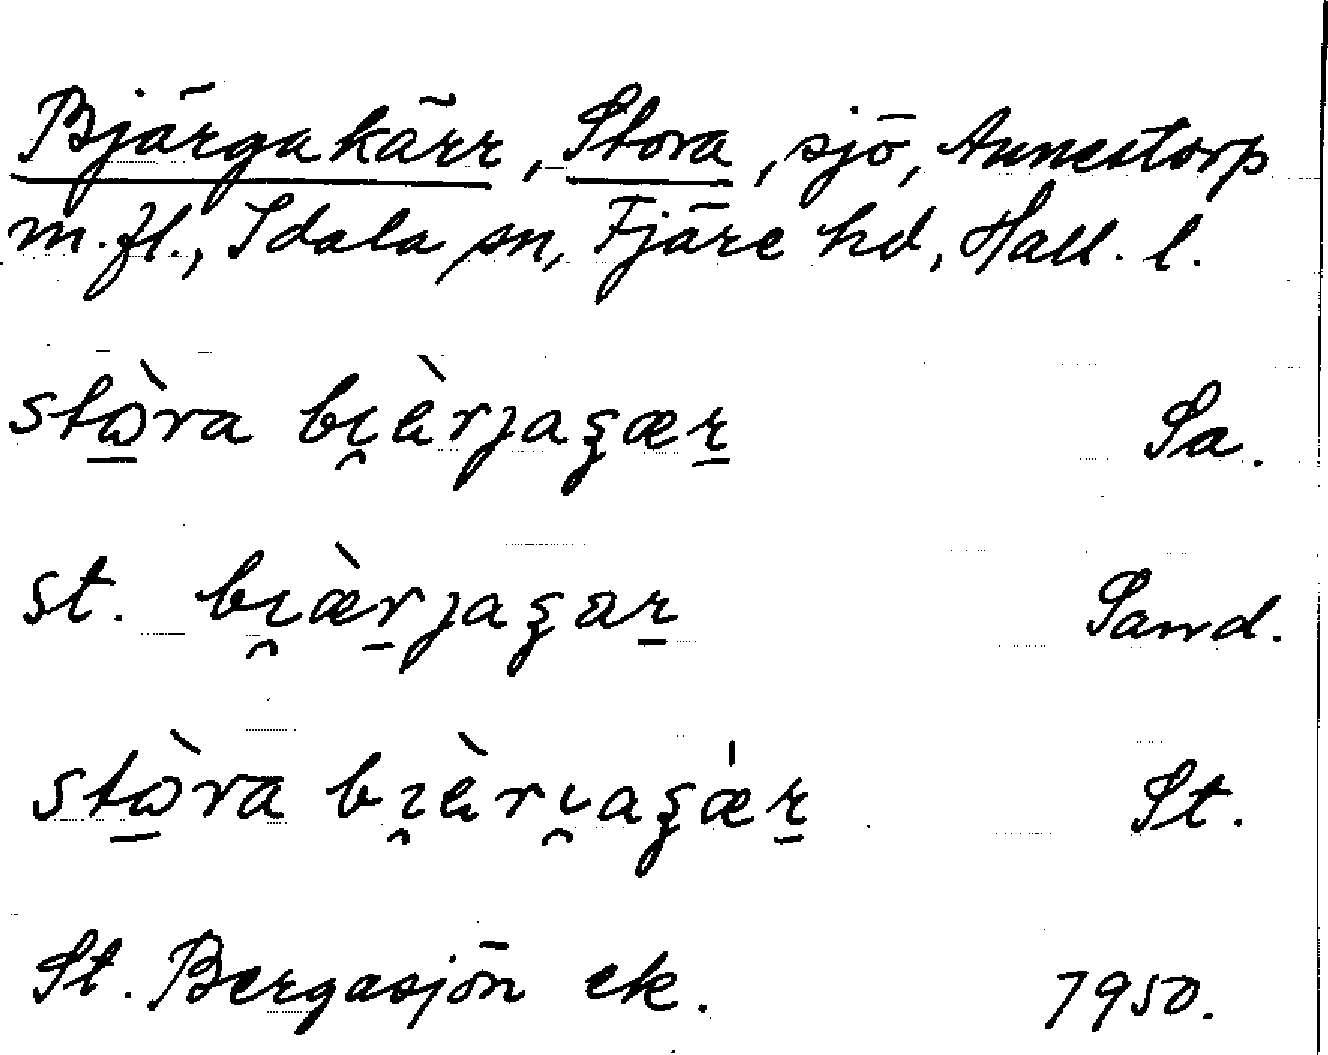 Bjärgakärr, Stora, sjö, Annestorp
m. fl., Idala sn, Fjäre hd, Hall. l.
stɷ̠̀ra bı̯ɛ̀rȷaʂæɽ̠ Sa.
st. bı̯æ̀r̠ȷaʂaɽ̠ Sand.
stɷ̠̀ra bı̯ɛ̀rı̯aʂǽɽ̠ St.
St. Bergasjön ek. 1950.